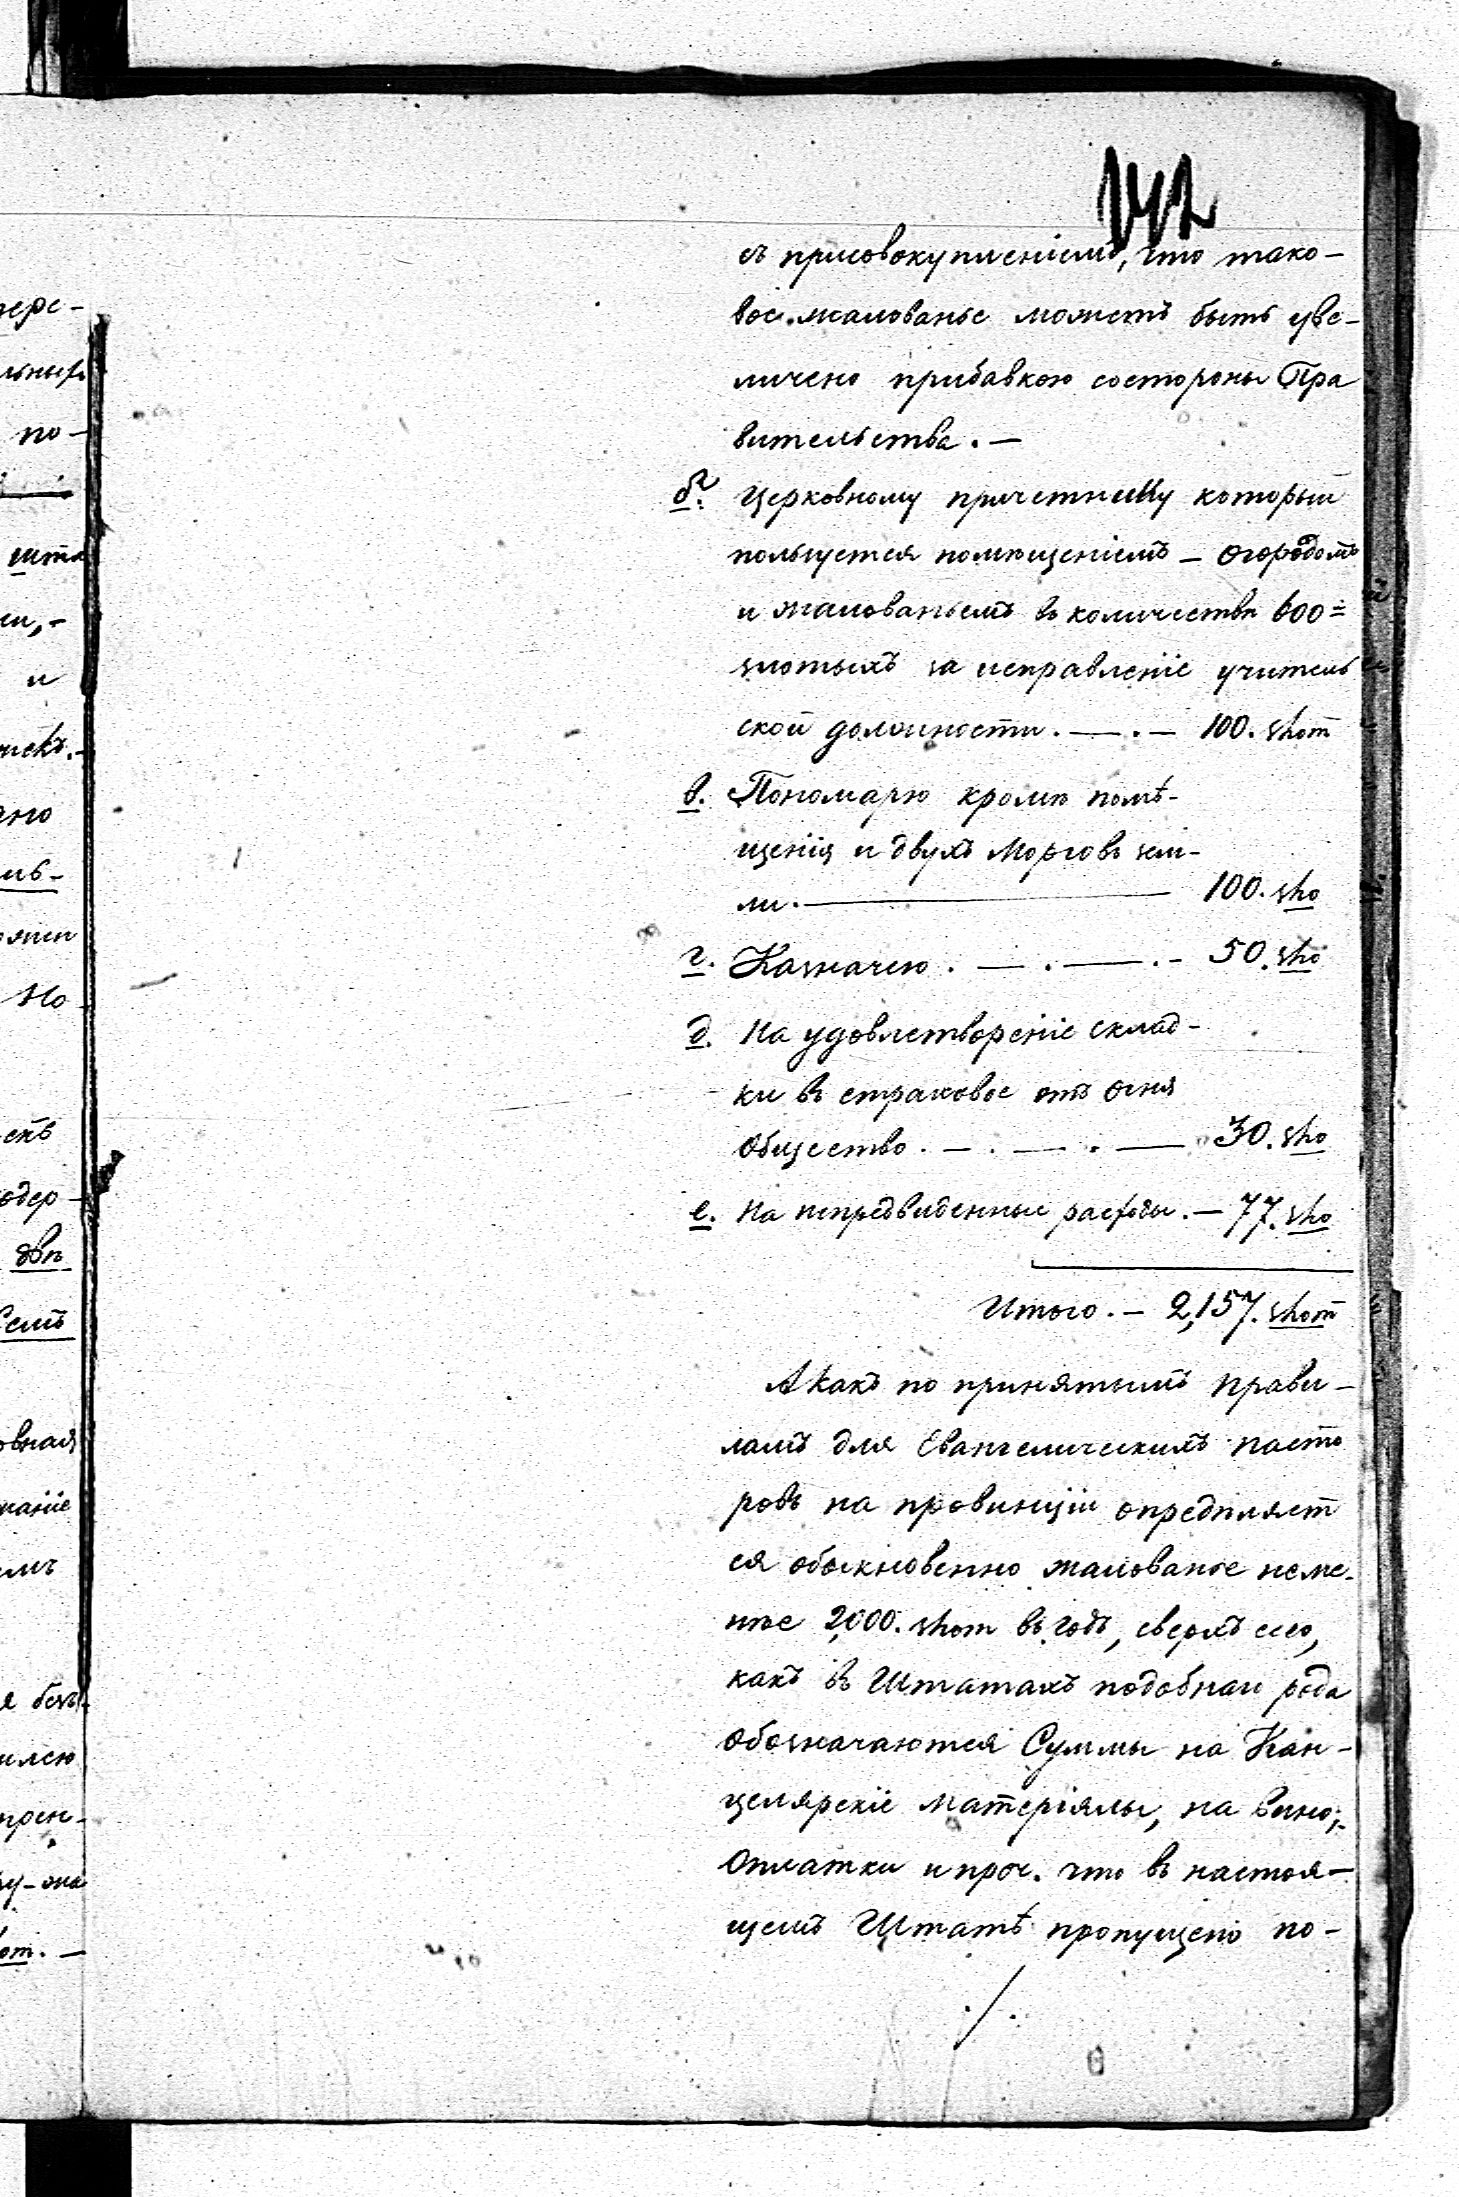 142
съ присовокупленіемъ, что тако-
вое жалованье можетъ быть уве-
личено прибавкою состороны Пра
вительства. —
б. Церковному причетнику который
пользуется помѣщеніемъ — огородомъ
и жалованьемъ въ количествѣ 600 =
злотыхъ за исправленіе учитель
ской должности. — . — 100. злот
в. Пономарю кромѣ помѣ-
щенія и двухъ Морговъ зем-
ли. — 100. зло
г. Казначею . — . — . - 50. зло
д. На удовлетвореніе склад-
ки въ страховое отъ огня
Общество . — . — . — 30. зло
е. На непредвиденные расходы. — 77. зло
Итого. — 2,157. злот
А какъ по принятымъ прави-
ламъ для Евангелическихъ пасто
ровъ на провинціи опредѣляет
ся обыкновенно жалованье неме-
нѣе 2,000. злот въ годъ, сверхъ сего,
какъ въ Штатахъ подобнаго рода
обозначаются Суммы на Кан-
целярскіе матеріялы, на вино,-
Оплатки и проч. что въ настоя-
щемъ Штатѣ пропущено по-
./.
пере-
льныхъ
по-
и
но
Но
одер-
овная
маніе
емъ
от. —